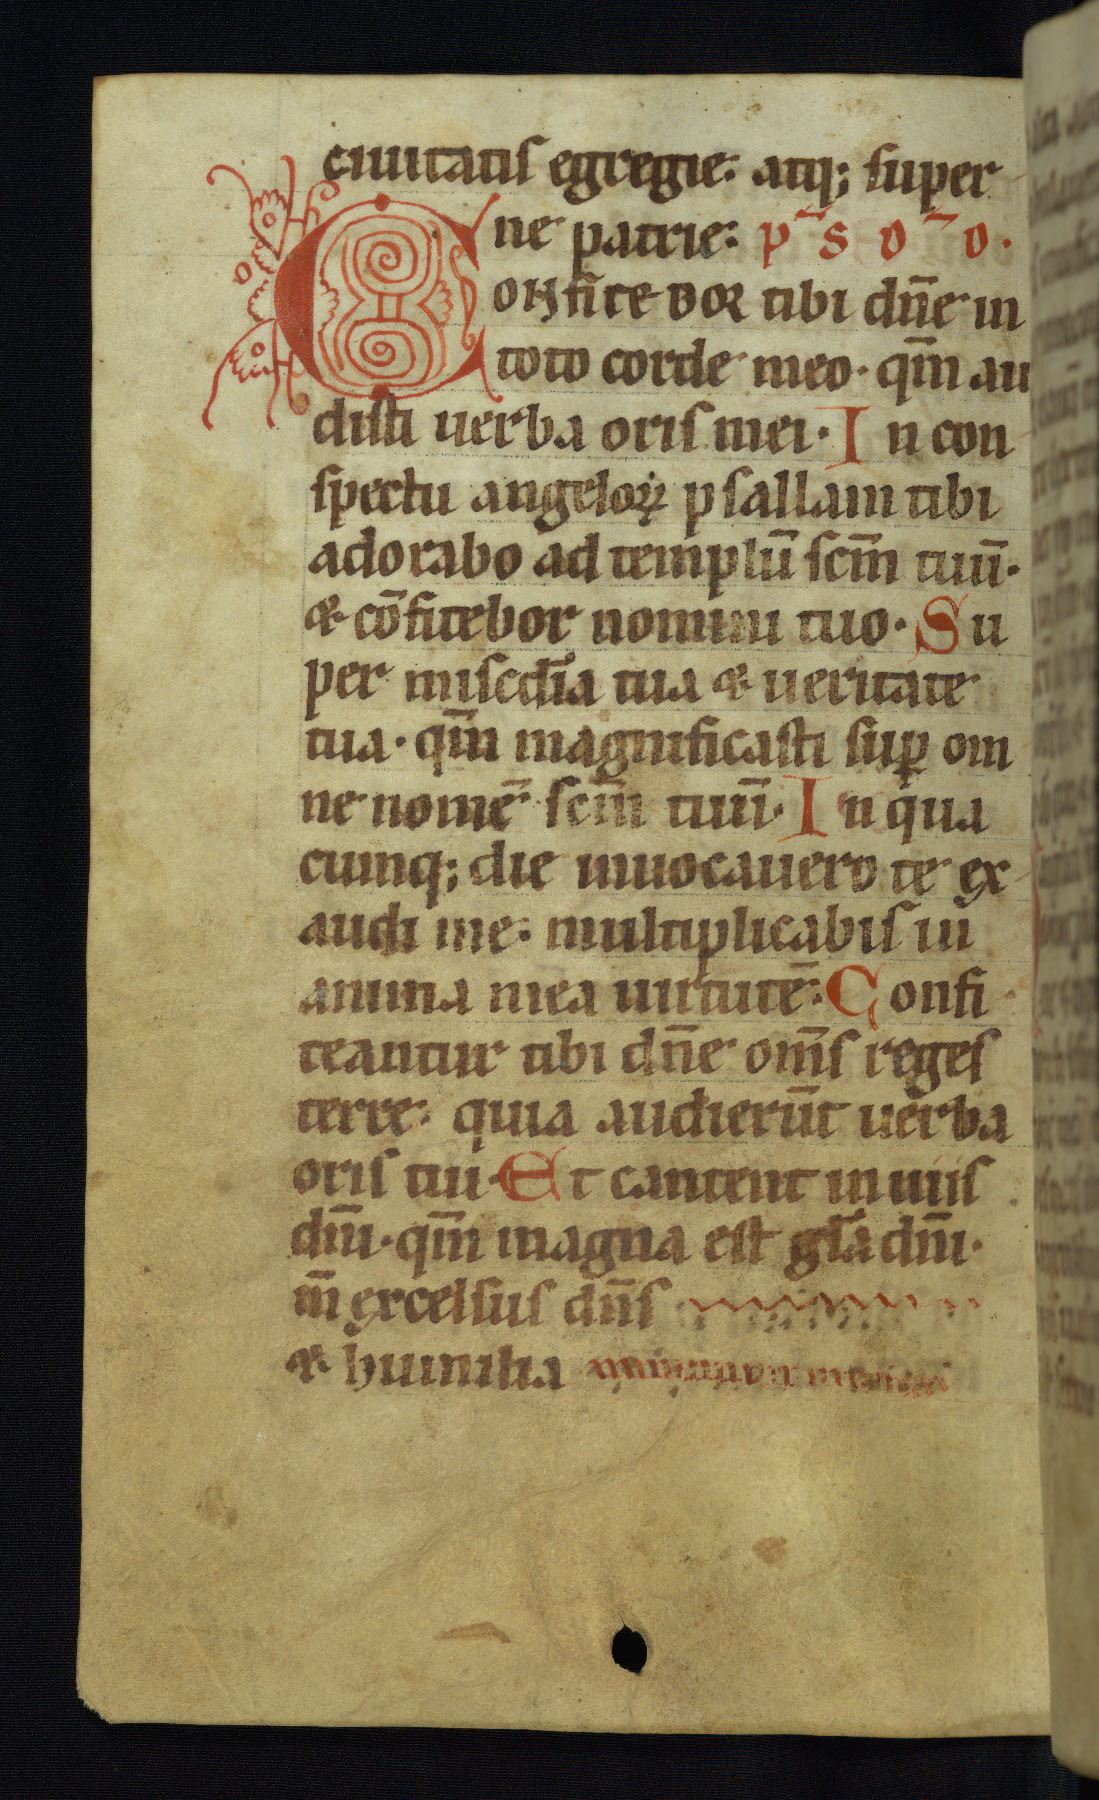 ciuitatis egregie: atq; super
ne patrie: p̄ s̄ d̄ d.
CONfite bor tibi dn̄e in
toto corde meo· qm̄ au
disti uerba oris mei· In con
spectu angeloꝝ psallam tibi
adorabo ad templū scm̄ tuū·
& cōfitebor nomini tuo· Su
per misc̄dia tua & ueritate
tua· qm̄ magnificasti suꝑ om
ne nomē scm̄ tuū· In qua
cumq; die inuocauero te ex
audi me: multiplicabis in
anima mea uirtutē: Confi
teantur tibi dn̄e om̄s reges
terre· quia audierūt uerba
oris tui· Et cantent in uiis
dn̄i· qm̄ magna est gl̄a dn̄i·
qm̄ excelsus dn̄s
& humilia